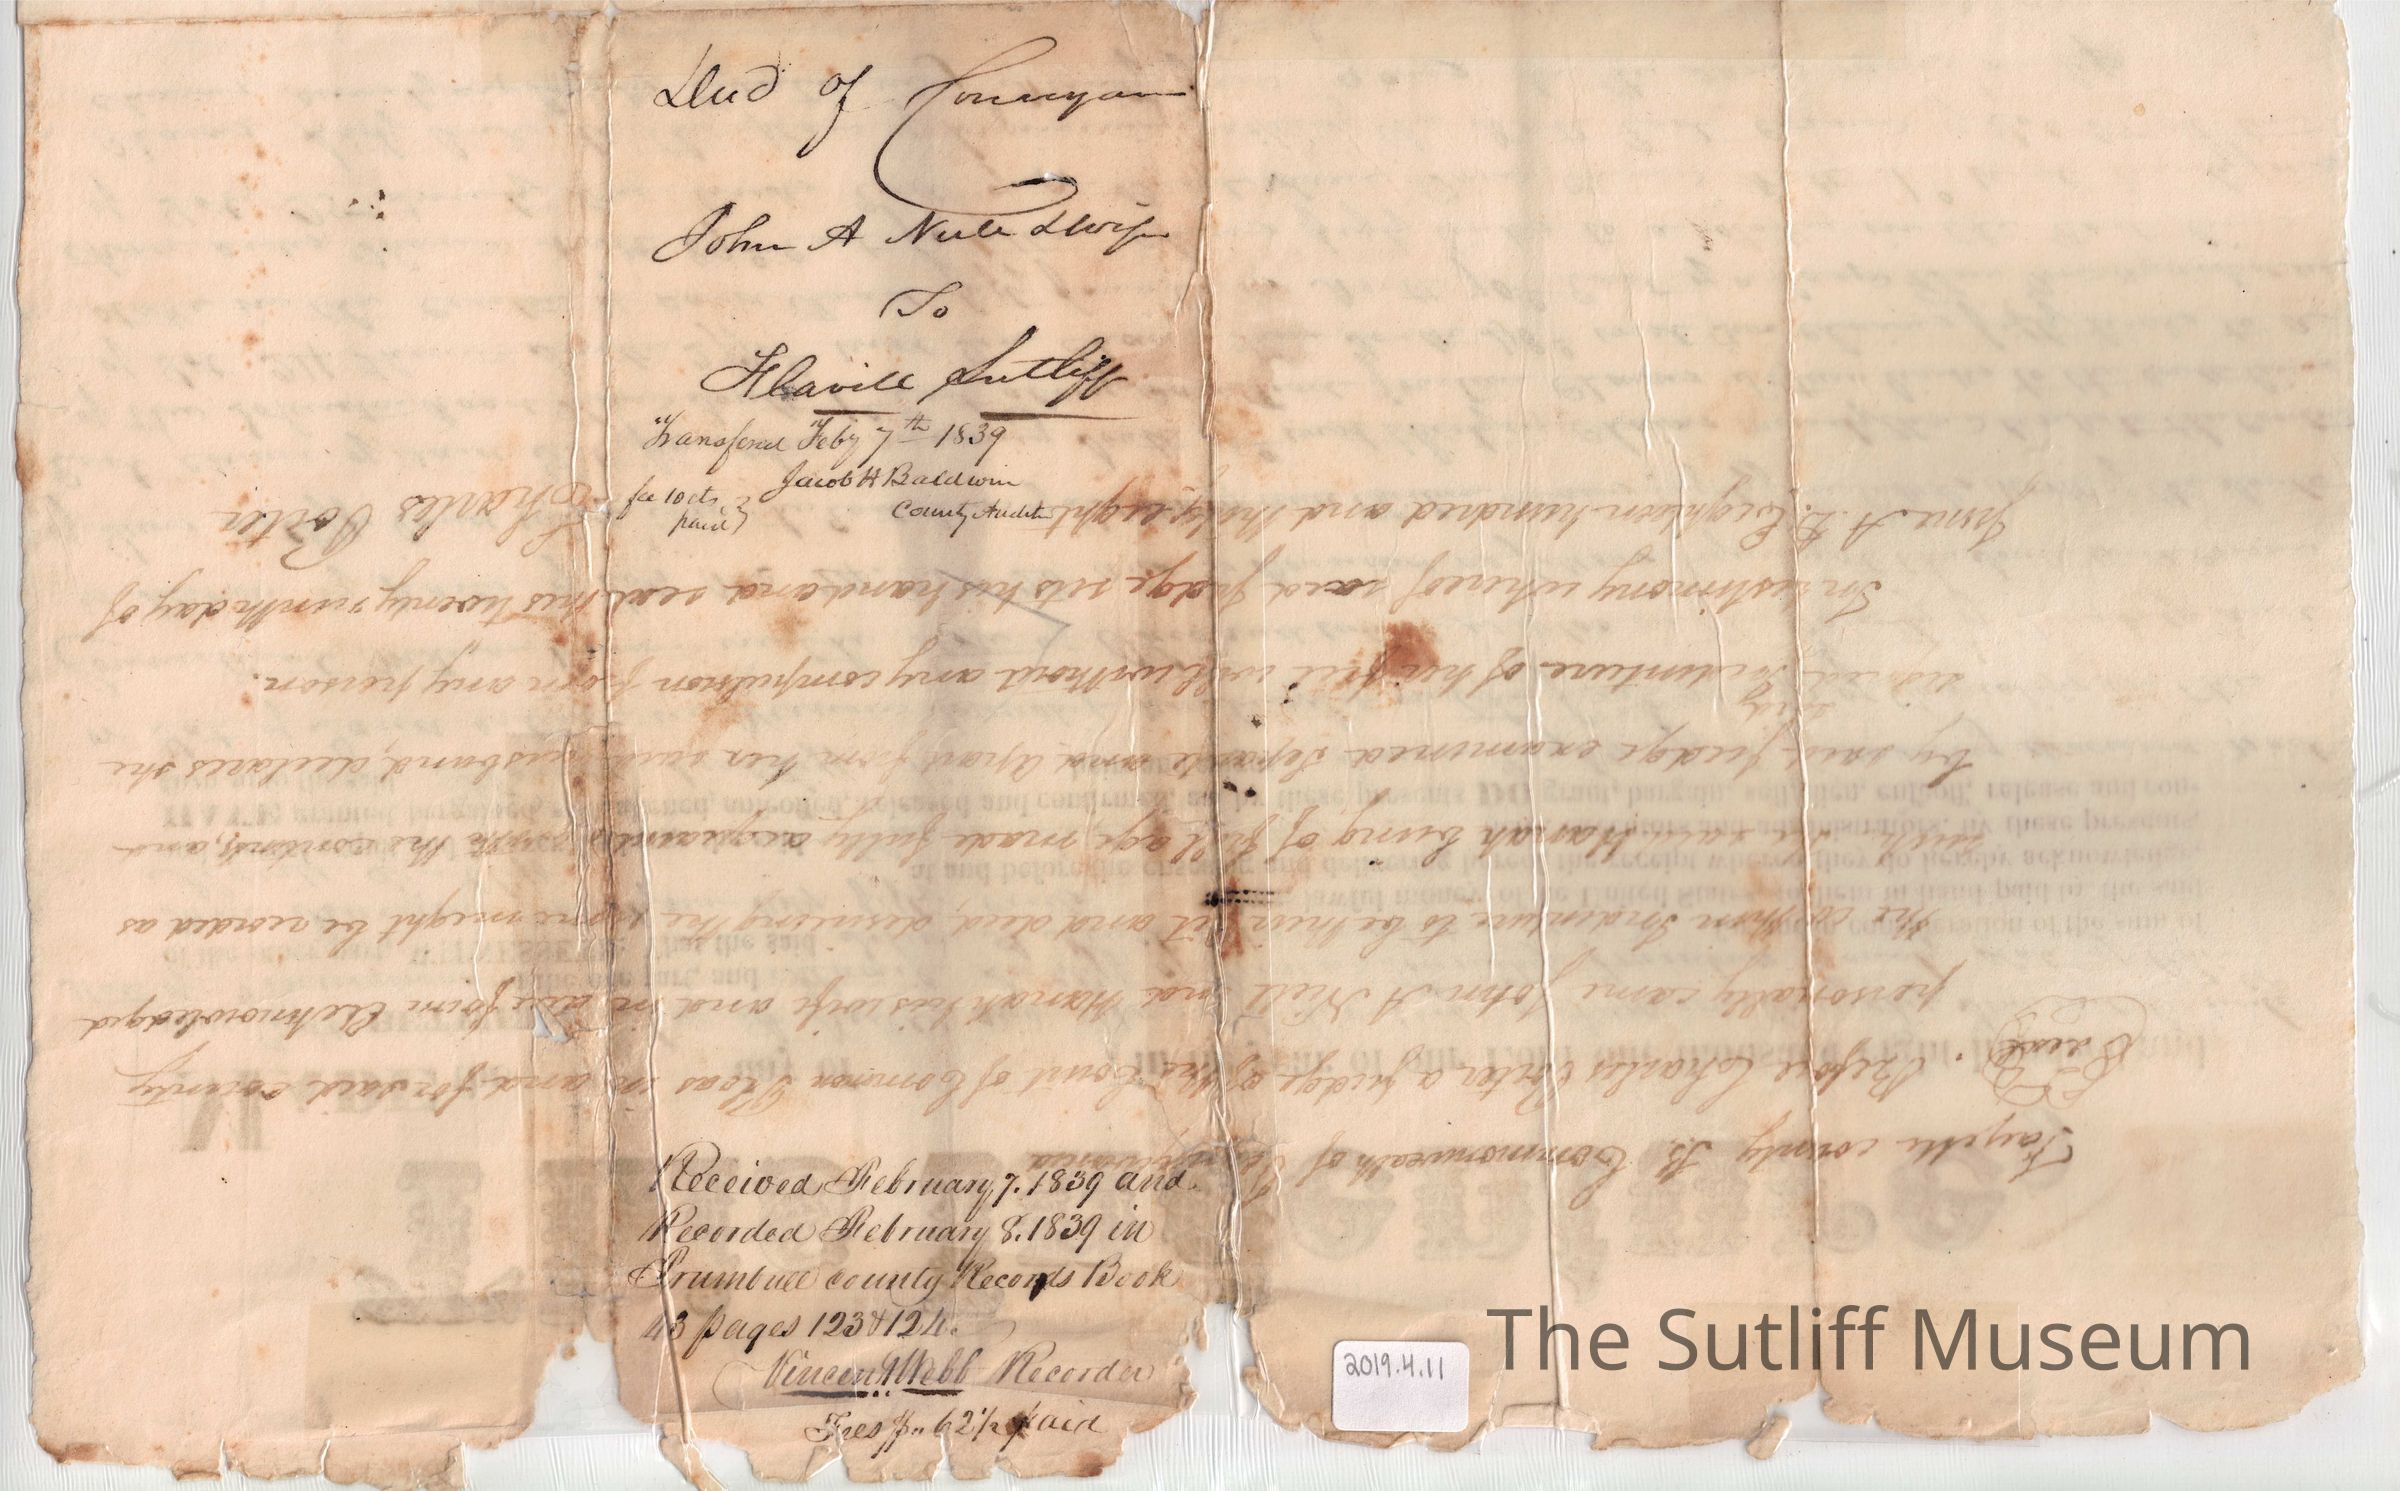 Deed of Conveyan
John A Niele & Wife
To
Flavill Sutliff
Transfered Feby 7th 1839
Jacob H Baldwin
fee 10 cts paid } County Auditor
Received February 7. 1839 and
Recorded February 8. 1839 in
Trumbull County Records Book
43 pages 123 & 124.
Vincent Webb Recorder
Fees $0.. 62 1/2 paid
Fayette county Ss. Commonwealth of Pennsylvania
Seal
Before Charles Porter a judge of the Court of Common Pleas in and for said county
personally came John A Niele and Hanah his wife and in due form Acknowledged
the within Indenture to be their Act and deed, desireing the same might be recorded as
such, the said Hanah being of full age, made fully acquainted with the contents, and
by said judge examined separate and apart from her said husband, declares she
signed Indenture of her free will without any compulsion from any person.
In testimony whereof said judge sets his hand and seal this twenty ninth day of
June A.D. Eighteen hundred and thirty eight
Charles Porter
2019.4.11
The Sutliff Museum